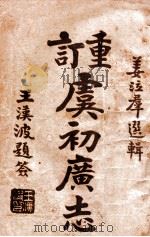 姜泣羣選輯
重訂虞初廣志
王漢波題簽